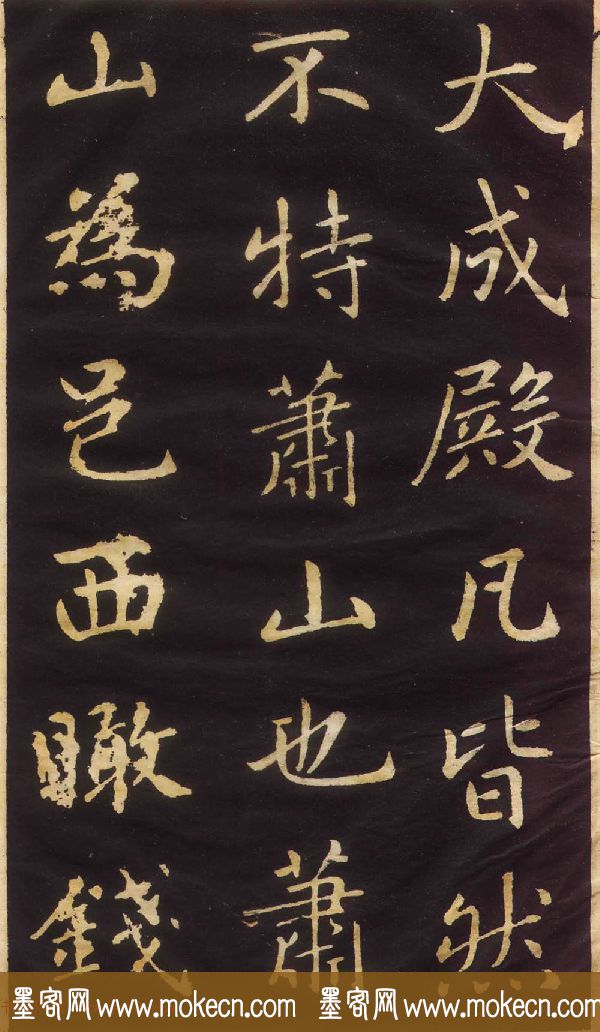 大成殿凡皆然
不特蕭山也蕭
山為邑西瞰錢
墨客网www.mokecn.com 墨客网www.mokecn.com